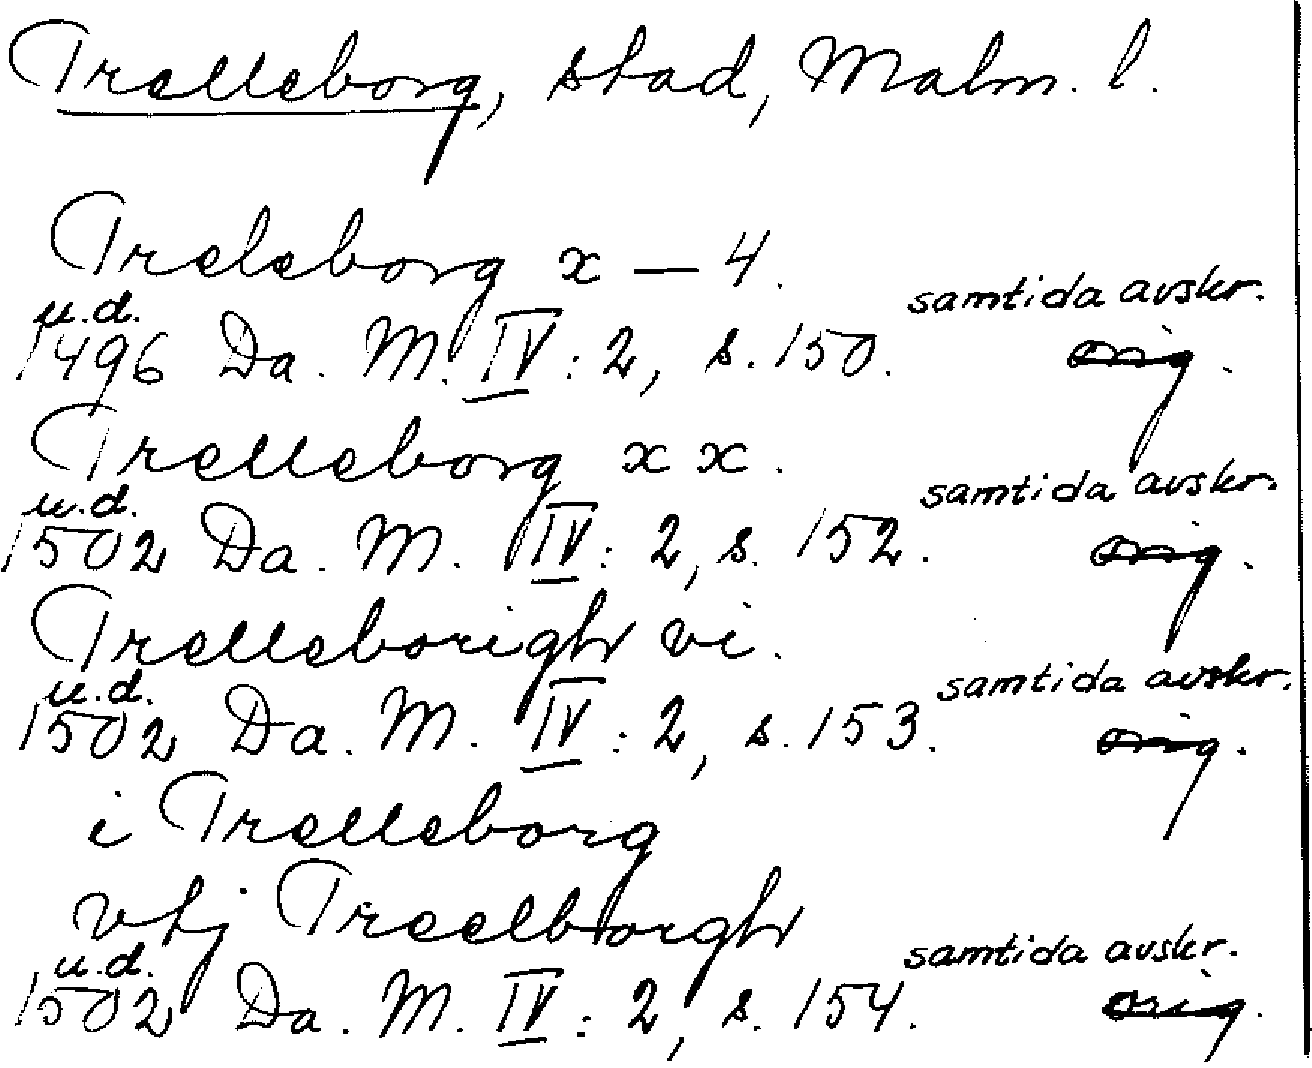 Trelleborg, stad, Malm. l.
Treleborg x — 4.
u.d. samtida avskr.
1496 Da. M. IV: 2, s. 150. orig.
Trelleborg x x.
u.d. samtida avskr.
1502 Da. M. IV: 2, s. 152. orig.
Trelleborigh vi.
u.d. samtida avskr.
1502 Da. M. IV: 2, s. 153. orig.
i Trelleborg
vtj Treelborgh
u.d. samtida avskr.
1502 Da. M. IV: 2, s. 154. orig.